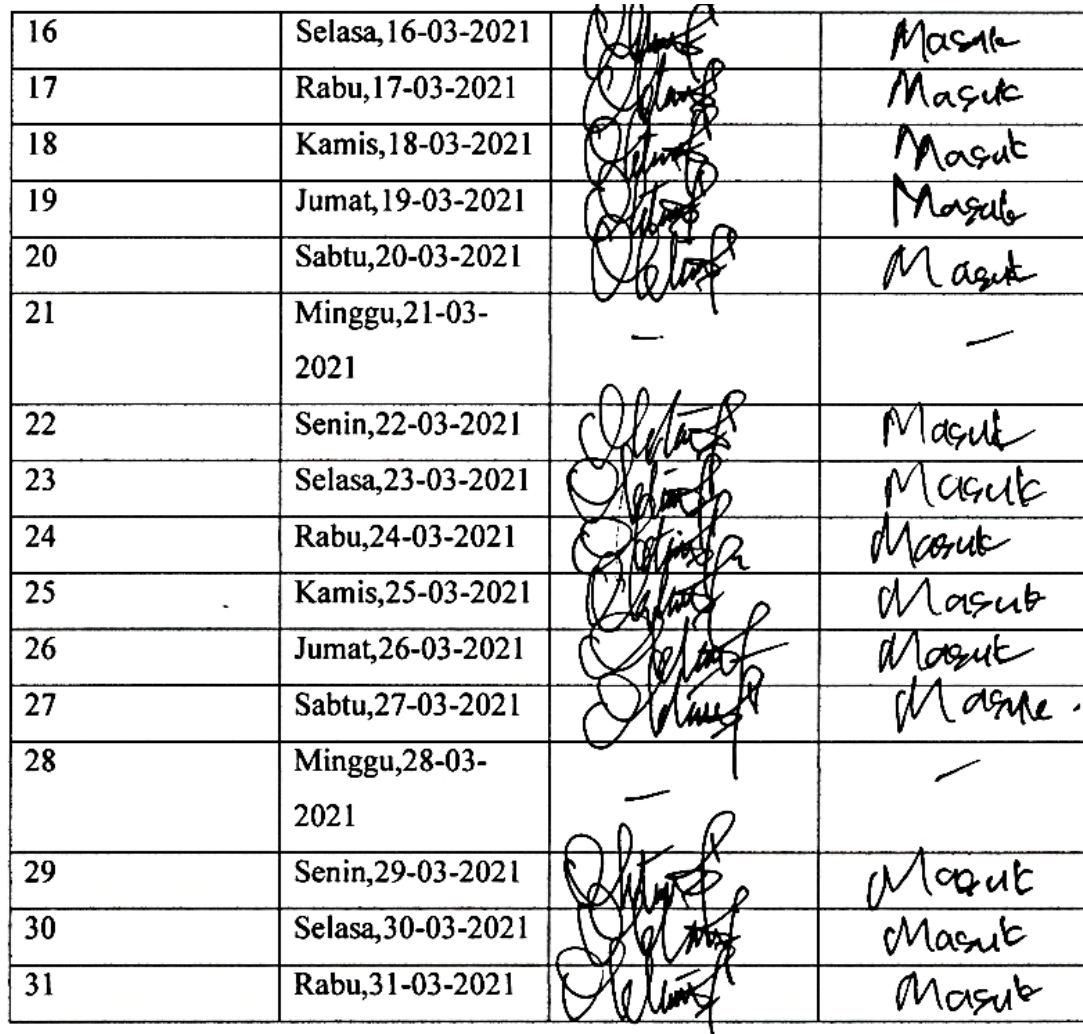 16 Selasa,16-03-2021 Masuk
17 Rabu,17-03-2021 Masuk
18 Kamis,18-03-2021 Masuk
19 Jumat,19-03-2021 Masuk
20 Sabtu,20-03-2021 Masuk
21 Minggu,21-03-
2021 — —
22 Senin,22-03-2021 Masuk
23 Selasa,23-03-2021 Masuk
24 Rabu,24-03-2021 Masuk
25 Kamis,25-03-2021 Masuk
26 Jumat,26-03-2021 Masuk
27 Sabtu,27-03-2021 Masuk
28 Minggu,28-03-
2021 — —
29 Senin,29-03-2021 Masuk
30 Selasa,30-03-2021 Masuk
31 Rabu,31-03-2021 Masuk